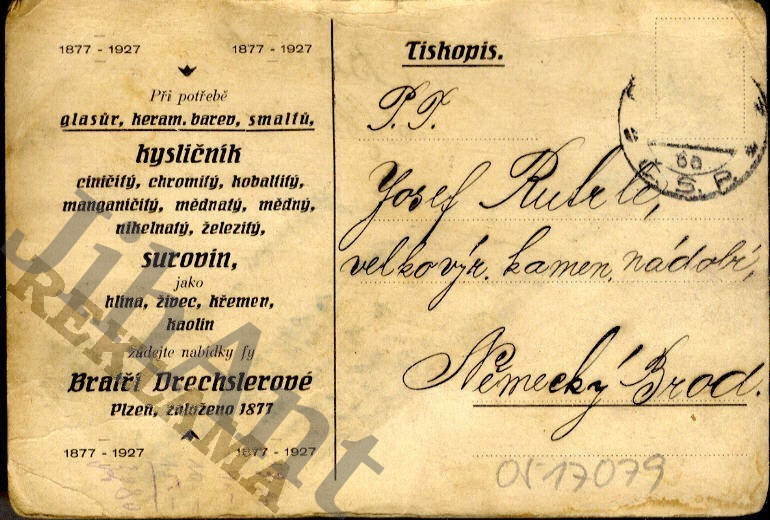 1877 - 1927 1877 - 1927
Při potřebě
glasur, keram. barev, smaltů,
kysličník
ciničitý, chromitý, kobaltitý,
manganičitý, mědnatý, mědný,
nikelnatý, železitý,
surovin,
jako
hlína, živec, křemen,
kaolin
žádejte nabídky fy
Bratří Drechslerové
Plzeň, založeno 1877
1877 - 1927 1877 - 1927
Tiskopis.
P. T.
Josef Rutrle,
velkovýr. kamen. nádobí,
Německý Brod.
6a
Č.S.P.
017079
JihAnt
REKLAMA